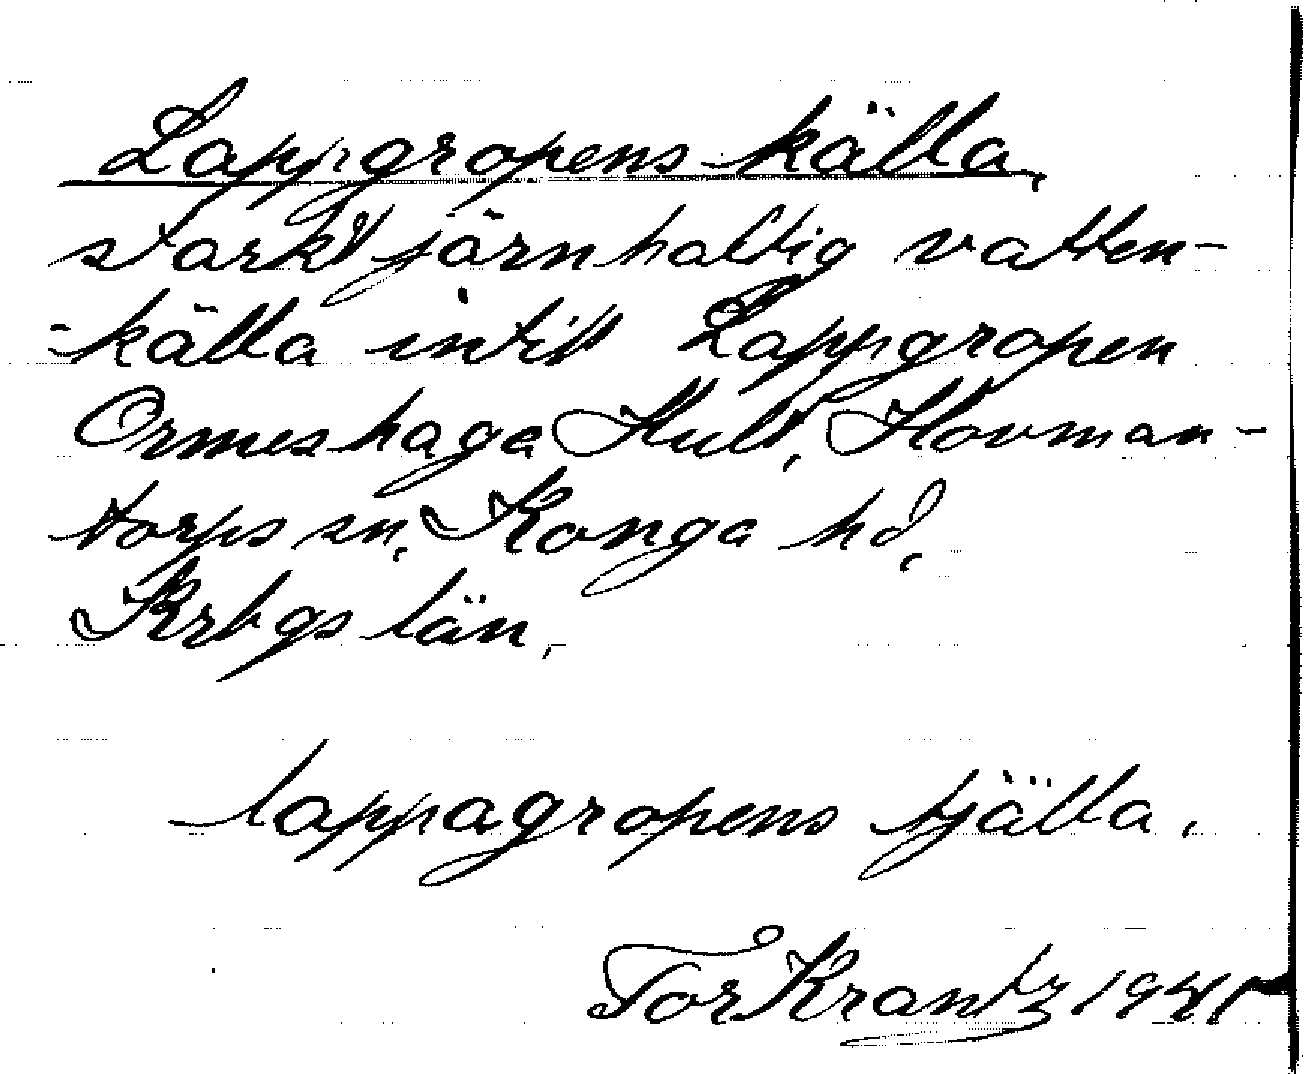 Lappgropens källa,
starkt järnhaltig vatten-
-källa intill Lappgropen
Ormeshaga Kult, Hovman-
torps sn, Konga hd,
Krbgs län,
lappagropens tjälla,
Tor Krantz